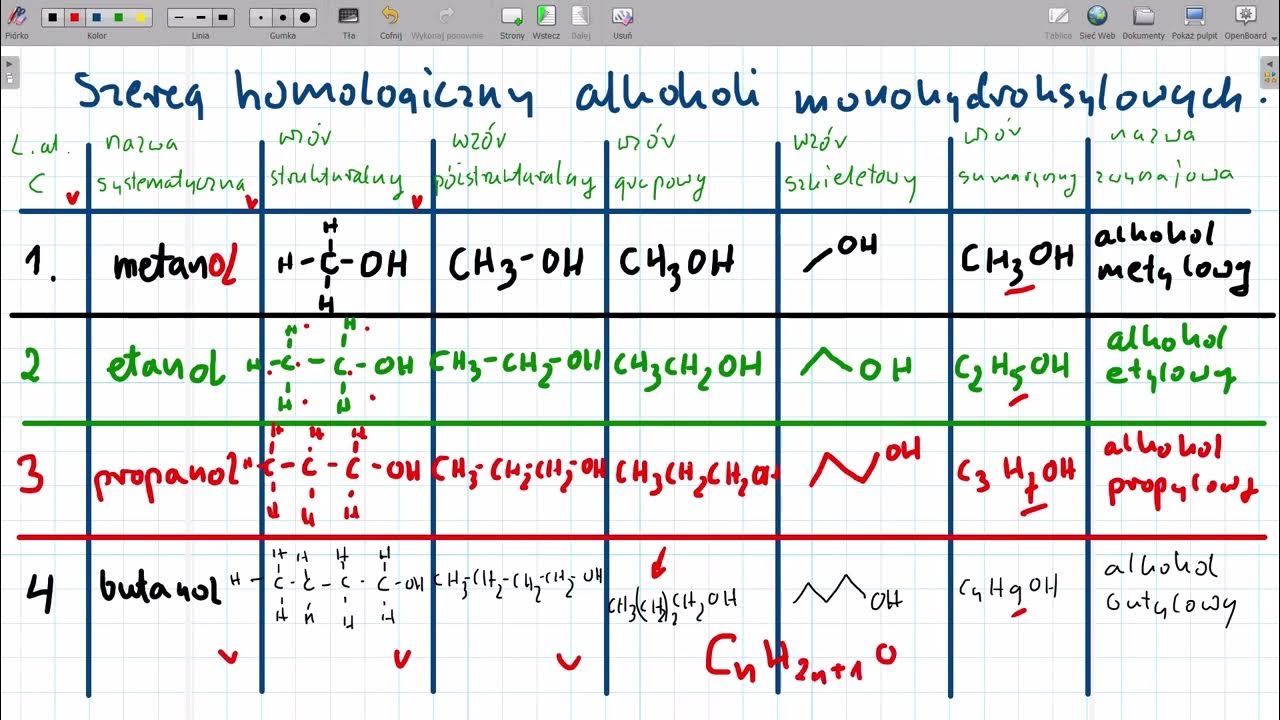 Piórko Kolor Linia Gumka Tła Cofnij Wykonaj ponownie Strony Wstecz Dalej Usuń Tablica Sieć Web Dokumenty Pokaż pulpit OpenBoard
Szereg homologiczny alkoholi monohydroksylowych.
L.at. C
nazwa systematyczna
wzór strukturalny
wzór półstrukturalny
wzór grupowy
wzór szkieletowy
wzór sumaryczny
nazwa zwyczajowa
1. metanol
H
H-C-OH
H
CH3-OH CH3OH
OH
CH3OH
alkohol
metylowy
2 etanol
H H
H-C-C-OH
H H
CH3-CH2-OH CH3CH2OH
OH
C2H5OH
alkohol
etylowy
3 propanol
H H H
H C-C-C-OH
H H H
CH3-CH2-CH2-OH CH3CH2CH2OH
OH
C3H7OH
alkohol
propylowy
4 butanol
H H H H
H-C-C-C-C-OH
H H H H
CH3-CH2-CH2-CH2-OH CH3(CH2)2CH2OH
OH
C4H9OH
alkohol
butylowy
CnH2n+1O